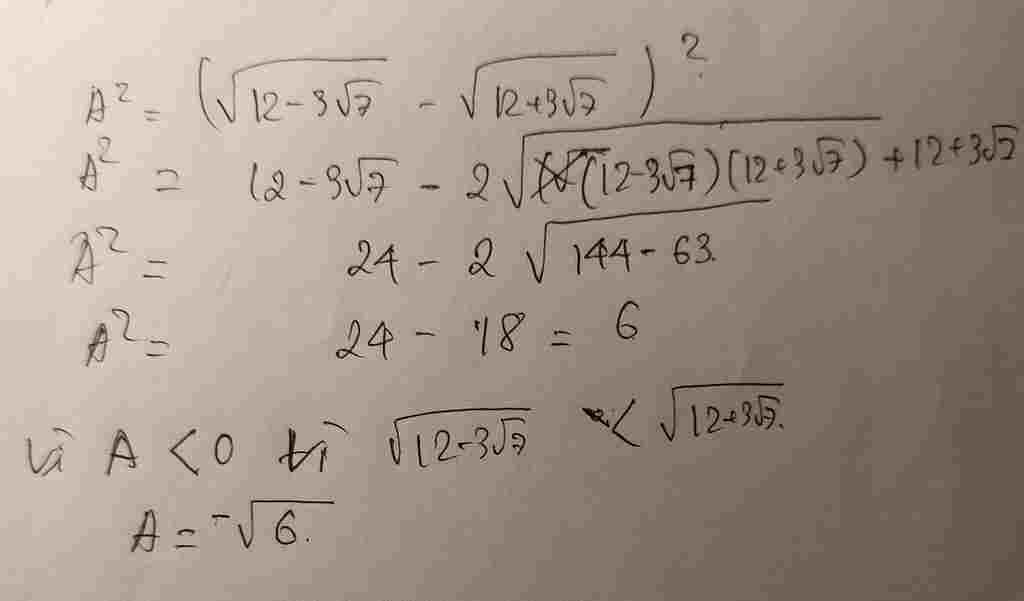 A² = (√(12-3√7) - √(12+3√7))²
A² = 12-3√7 - 2√((12-3√7)(12+3√7)) + 12+3√7
A² = 24 - 2√(144-63)
A² = 24 - 18 = 6
Vì A < 0 vì √(12-3√7) < √(12+3√7).
A = -√6.